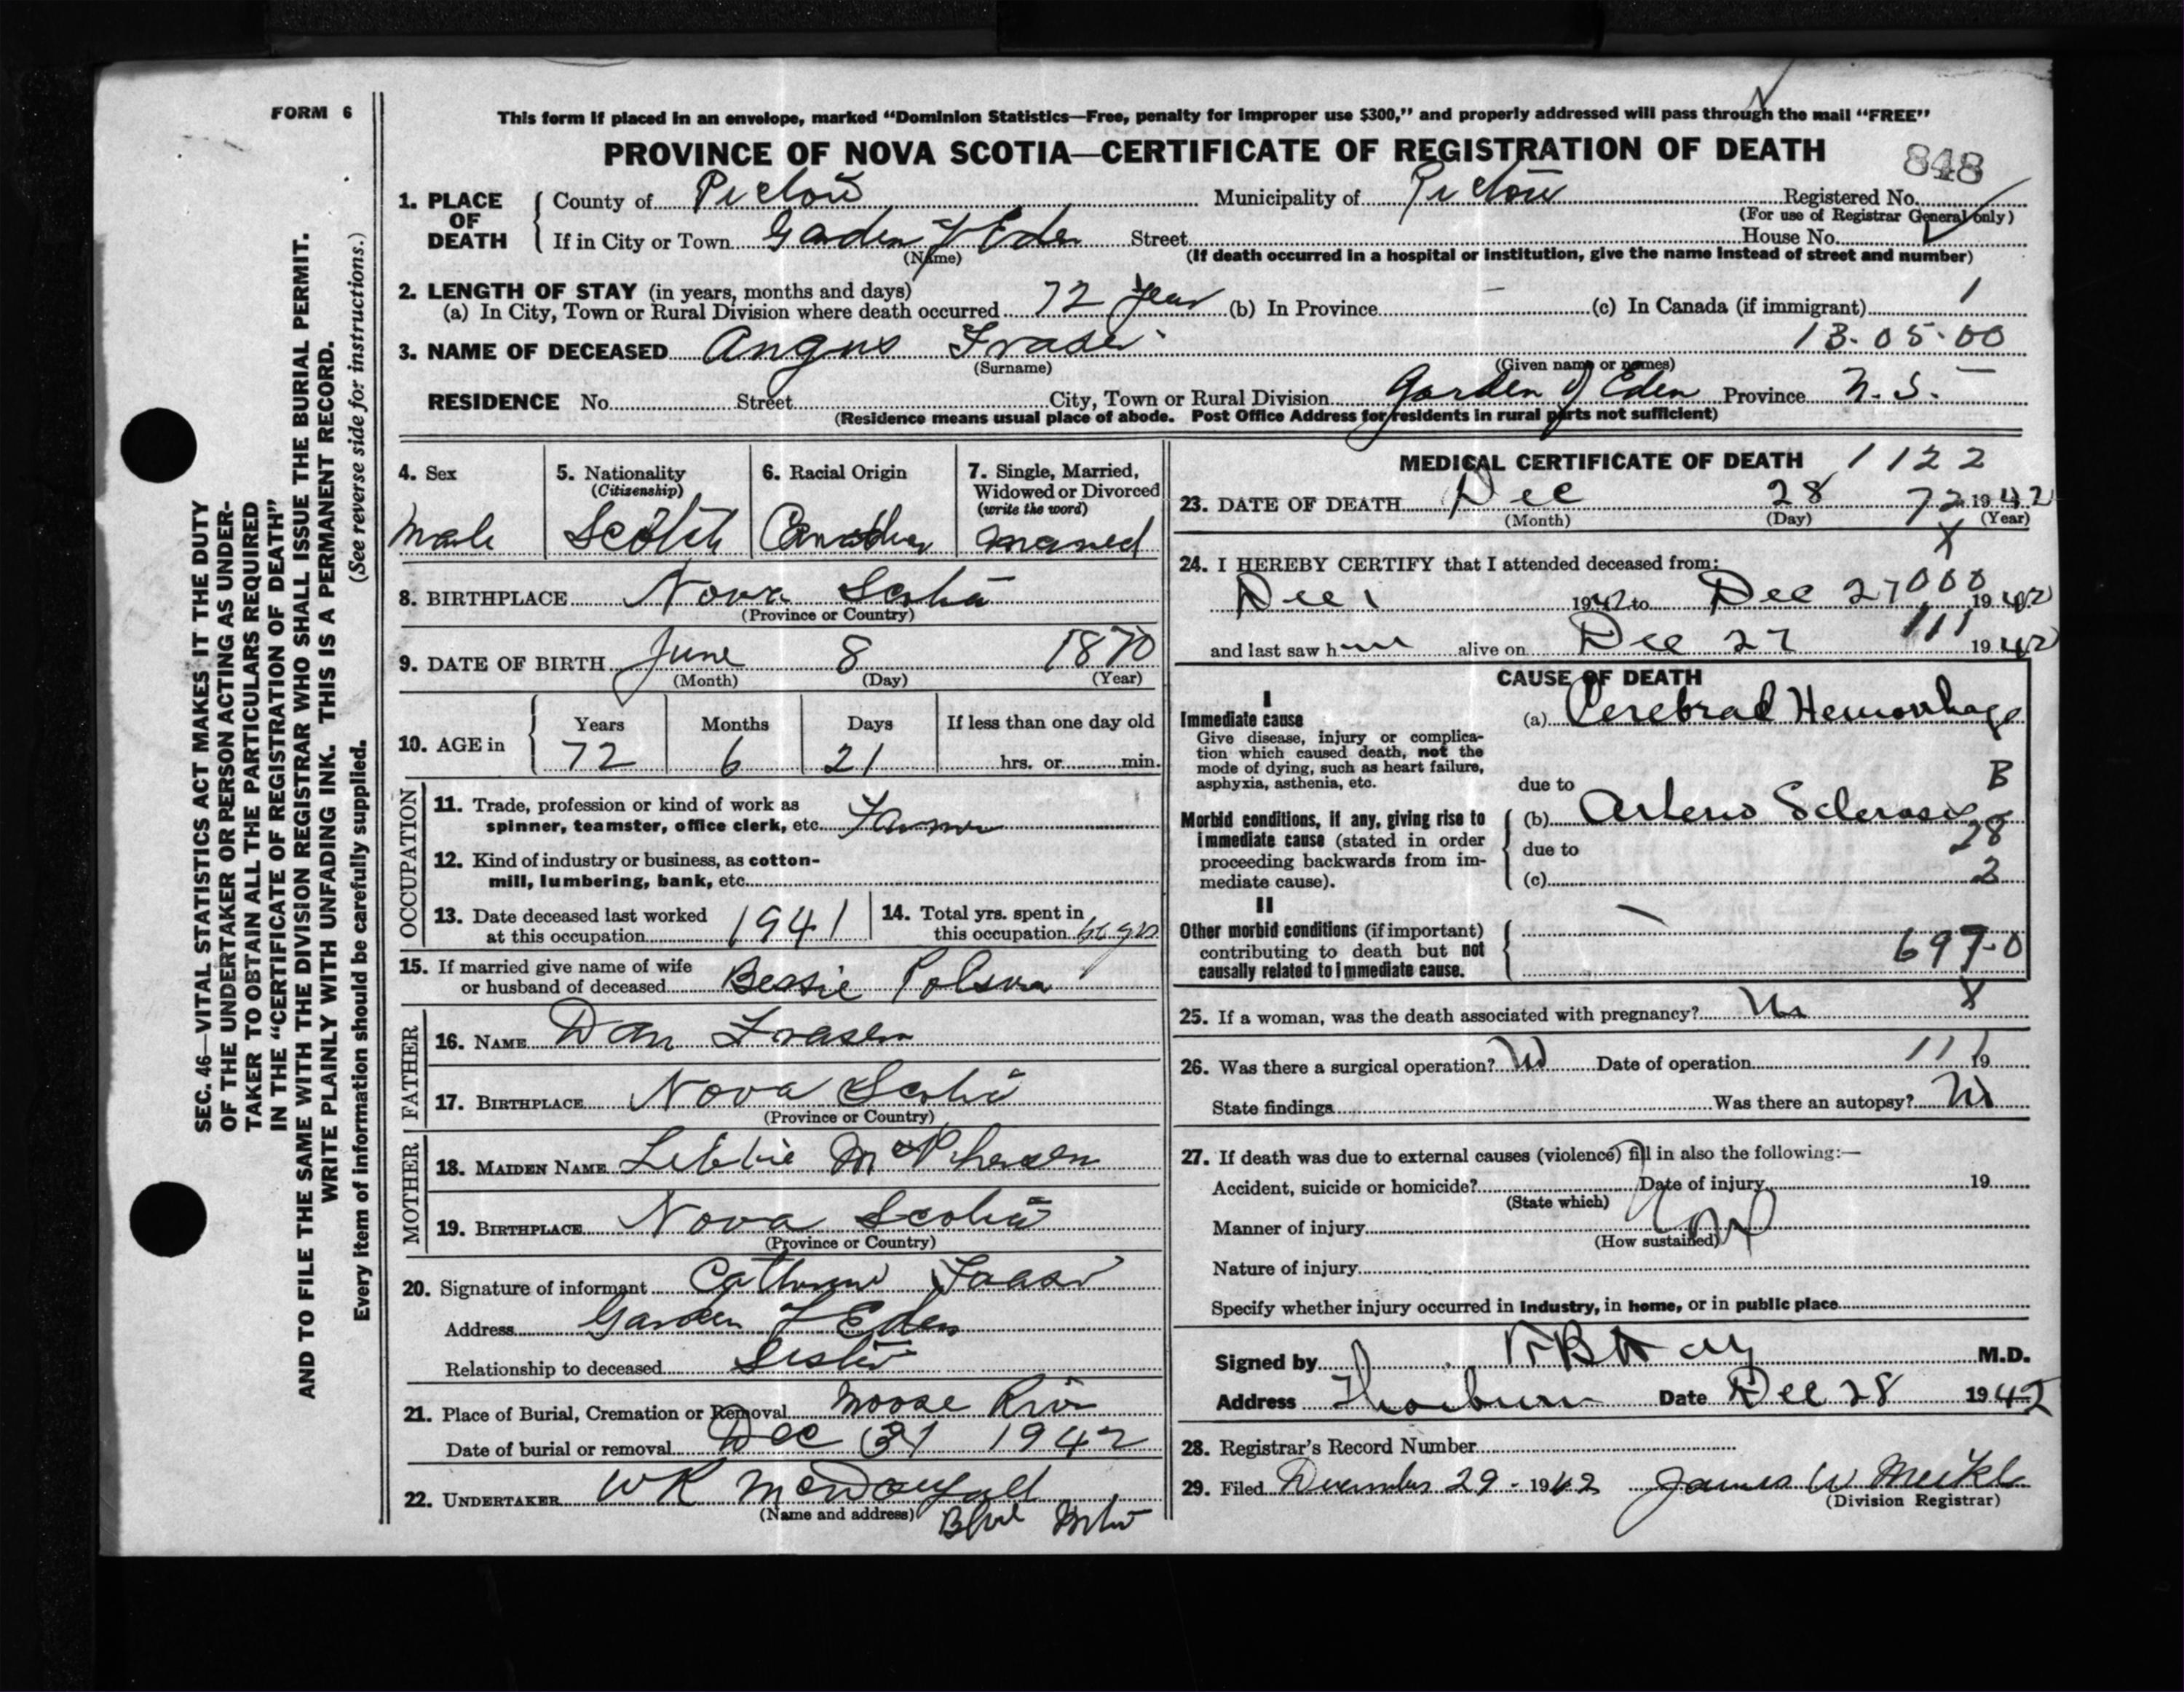 FORM 6
This form if placed in an envelope, marked “Dominion Statistics—Free, penalty for improper use $300,” and properly addressed will pass through the mail “FREE”
PROVINCE OF NOVA SCOTIA—CERTIFICATE OF REGISTRATION OF DEATH
848
1. PLACE OF DEATH
County of Pictou Municipality of Pictou Registered No.
(For use of Registrar General only)
If in City or Town Garden of Eden Street House No.
(Name) (If death occurred in a hospital or institution, give the name instead of street and number)
2. LENGTH OF STAY (in years, months and days)
(a) In City, Town or Rural Division where death occurred 72 year (b) In Province — (c) In Canada (if immigrant) 1
13-05-00
3. NAME OF DECEASED Angus Fraser
(Surname) (Given name or names)
RESIDENCE No. Street City, Town or Rural Division Garden of Eden Province N.S.
(Residence means usual place of abode. Post Office Address for residents in rural parts not sufficient)
4. Sex 5. Nationality (Citizenship) 6. Racial Origin 7. Single, Married, Widowed or Divorced (write the word)
Male Scotch Canadian Married
8. BIRTHPLACE Nova Scotia
(Province or Country)
9. DATE OF BIRTH June 8 1870
(Month) (Day) (Year)
10. AGE in Years Months Days If less than one day old
72 6 21 hrs. or min.
OCCUPATION
11. Trade, profession or kind of work as
spinner, teamster, office clerk, etc. Farmer
12. Kind of industry or business, as cotton-
mill, lumbering, bank, etc.
13. Date deceased last worked
at this occupation 1941
14. Total yrs. spent in
this occupation
15. If married give name of wife
or husband of deceased Bessie Polson
FATHER
16. NAME Dan Fraser
17. BIRTHPLACE Nova Scotia
(Province or Country)
MOTHER
18. MAIDEN NAME Libbie McPherson
19. BIRTHPLACE Nova Scotia
(Province or Country)
20. Signature of informant Catherine Fraser
Address Garden of Eden
Relationship to deceased Sister
21. Place of Burial, Cremation or Removal Moose River
Date of burial or removal Dec 31 1942
22. UNDERTAKER WR McDougall
(Name and address) Blue Mtn
MEDICAL CERTIFICATE OF DEATH 1122
23. DATE OF DEATH Dec 28 72 1942
(Month) (Day) (Year)
X
24. I HEREBY CERTIFY that I attended deceased from:
Dec 1 1942 to Dec 27 000 1942
and last saw him alive on Dec 27 111 1942
CAUSE OF DEATH
I
Immediate cause
Give disease, injury or complica-
tion which caused death, not the
mode of dying, such as heart failure,
asphyxia, asthenia, etc.
(a) Cerebral Hemorrhage
B
due to
Morbid conditions, if any, giving rise to
immediate cause (stated in order
proceeding backwards from im-
mediate cause).
(b) Arterio Sclerosis
28
due to
(c) 2
II
Other morbid conditions (if important)
contributing to death but not
causally related to immediate cause.
—
697-0
X
25. If a woman, was the death associated with pregnancy? No
26. Was there a surgical operation? No Date of operation 111 19
State findings Was there an autopsy? No
27. If death was due to external causes (violence) fill in also the following:—
Accident, suicide or homicide? Date of injury 19
(State which)
Manner of injury
(How sustained)
Nature of injury
Specify whether injury occurred in industry, in home, or in public place
Signed by M.D.
Address Thorburn Date Dec 28 1942
28. Registrar’s Record Number
29. Filed December 29 - 1942 James W Meikle
(Division Registrar)
SEC. 46—VITAL STATISTICS ACT MAKES IT THE DUTY
OF THE UNDERTAKER OR PERSON ACTING AS UNDER-
TAKER TO OBTAIN ALL THE PARTICULARS REQUIRED
IN THE “CERTIFICATE OF REGISTRATION OF DEATH”
AND TO FILE THE SAME WITH THE DIVISION REGISTRAR WHO SHALL ISSUE THE BURIAL PERMIT.
WRITE PLAINLY WITH UNFADING INK. THIS IS A PERMANENT RECORD.
Every item of information should be carefully supplied. (See reverse side for instructions.)